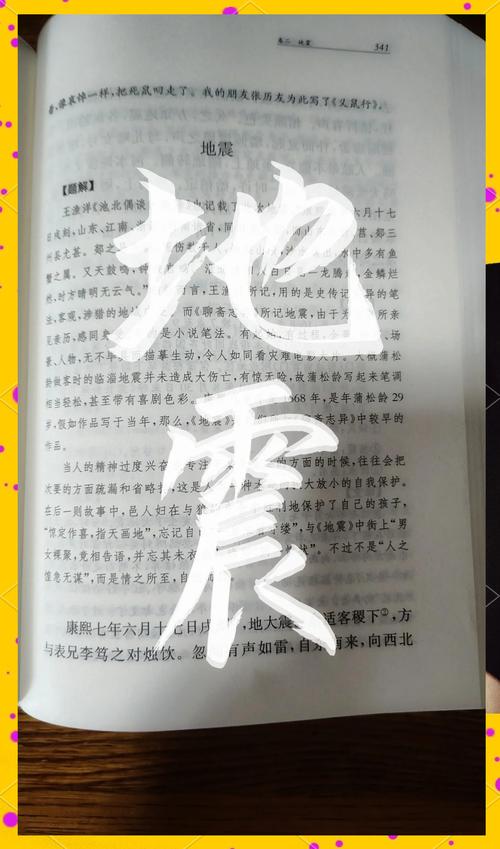 卷二 地震 341
着,像哀悼一样,把死鼠叼走了。我的朋友张历友为此写了《义鼠行》。
地震
【题解】
王渔洋《池北偶谈
六月十七
日戌刻,山东、江南
莒、郯三
州县尤甚。郯之
水中多有鱼
蟹之属。又天鼓鸣,钟
人白日见一龙腾
金鳞烂
然,时方晴明无云气。”
所记,用的是史传记
异的笔
法,客观,涉猎的地
而《聊斋志
所记地震,由于
所亲
见亲历,感同身
是小说笔法。有
有过程,
场
景、人物,无不牟
描摹生动,令人如同看灾难电影大片。大概蒲松
龄做客时的临淄地震并未造成大伤亡,有惊无险,故蒲松龄写起来笔调
相当轻松,甚至带有喜剧色彩。
1668 年,是年蒲松龄 29
岁,假如作品写于当年,那么,《地震》
斋志异》中较早的
作品。
当人的精神过度兴奋
专注
的方面的时候,往往会把
次要的方面疏漏和省略掉,这是人
大放小的自我保护。
在后一则故事中,邑人妇在与狼
地保护了自己的孩子,
“惊定作喜,指天画地”,忘记自
缕”,与《地震》中街上“男
女裸聚,竞相告语,并忘其未衣
状”。不过不是“人之
惶急无谋”,而是情之所至,自
康熙七年六月十七日戌
,地大震
适客稷下②,方
与表兄李笃之对烛饮。忽
有声如雷,自东南来,向西北
地
震